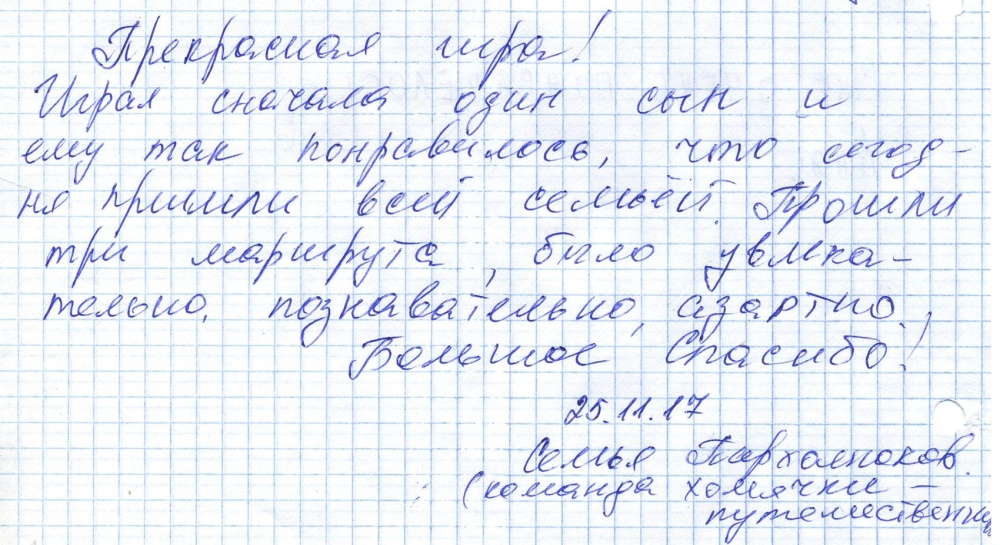 Прекрасная игра!
Играл сначала один сын и
ему так понравилось, что сегод-
ня пришли всей семьёй. Прошли
три маршрута, было увлека-
тельно, познавательно, азартно.
Большое Спасибо!
25.11.17
Семья
(команда хомячки –